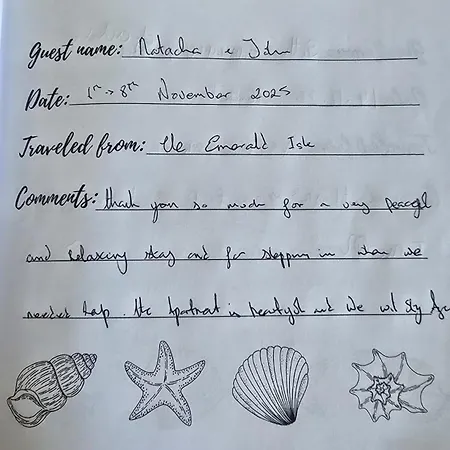 Guest name: Natacha & John
Date: 1st → 8th November 2025
Traveled from: The Emerald Isle
Comments: Thank you so much for a very peaceful
and relaxing stay and for stepping in when we
needed help. The Apartment is beautiful and we will stay